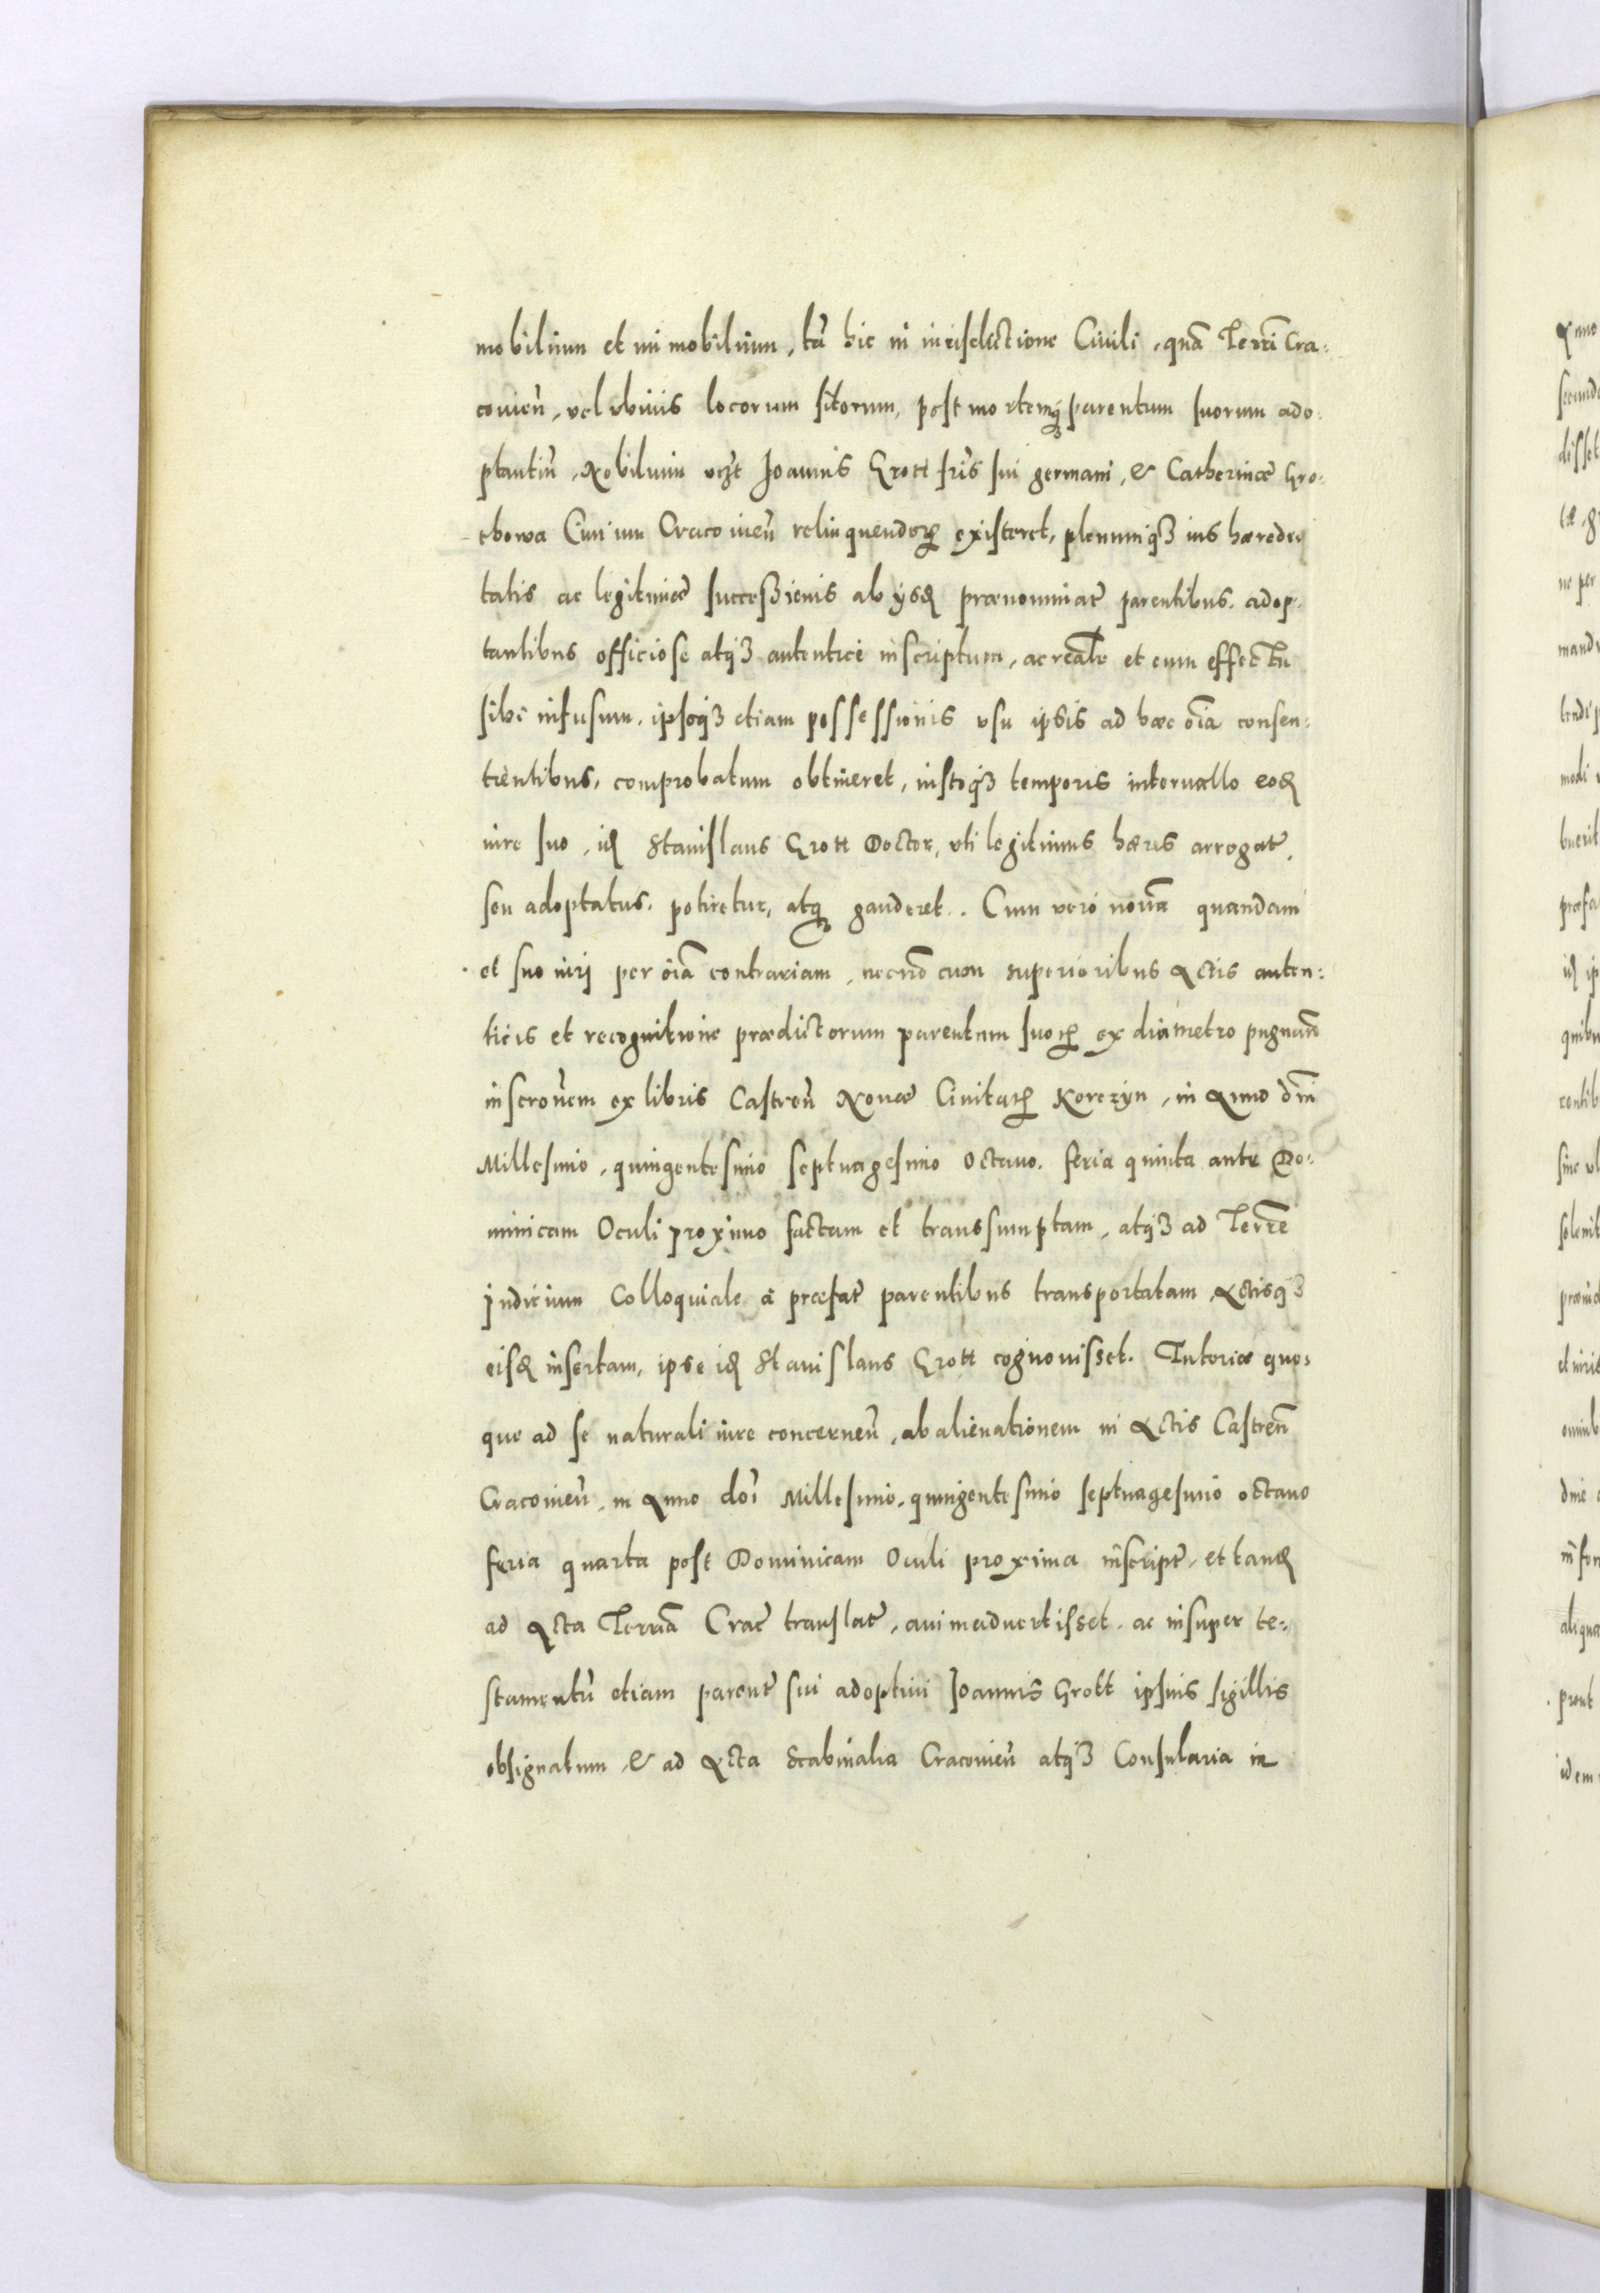 mobilium et immobilium, tā hic in iurisdictione Ciuili, quā Terrī Cra-
couień, vel vbiuis locorum sitorum, post mortemq́ȝ parentum suorum ado-
ptantiū, Nobilium vcȝt Joannis Grott fr̄is sui germani, & Catherinæ Gro-
chowa Ciuium Cracouień relinquendoꝝ existeret, plenumq́ȝ ius hæredi-
tatis ac legitimæ successionis ab ijsđ prænominat̃ parentibus adop-
tantibus officiose atq́ȝ autentice inscriptum, ac reāle et cum effectu
sibi infusum, ipsoq́ȝ etiam possessionis vsu ipsis ad hæc oīa consen-
tientibus, comprobatum obtineret, instoq́ȝ temporis interuallo eođ
iure suo, iđ Stanislaus Grott Doctor, vti legitimus hæres arrogat̃,
seu adoptatus, potiretur, atq́ȝ gauderet. Cum vero nouā quandam
et suo iuri per oīa contrariam, necnō cum superioribus Actis auten-
ticis et recognitione prædictorum parentum suoꝝ ex diametro pugnań
inscrōnem ex libris Castreń Nouæ Ciuitaꝝ Korczyn, in Anno dn̄i
Millesimo, quingentesimo septuagesimo octauo, feria quinta ante Do-
minicam Oculi proximo factam et transsumptam, atq́ȝ ad Terr̄e
Judicium Colloquiale à præfat̃ parentibus transportatam, Actisq́ȝ
eisđ insertam, ipse iđ Stanislaus Grott cognouisset. Tutoriæ quo-
que ad se naturali iure concerneń, abalienationem in Actis Castreń
Cracouień, in Anno doī Millesimo, quingentesimo septuagesimo octauo
feria quarta post Dominicam Oculi proxima inscript̃, et tanđ
ad Acta Terrīa Crac̃ translat̃, animaduertisset, ac insuper te-
stamentū etiam parent̃ sui adoptiui Joannis Grott ipsius sigillis
obsignatum, & ad Acta Scabinalia Cracouień atq́ȝ Consularia in